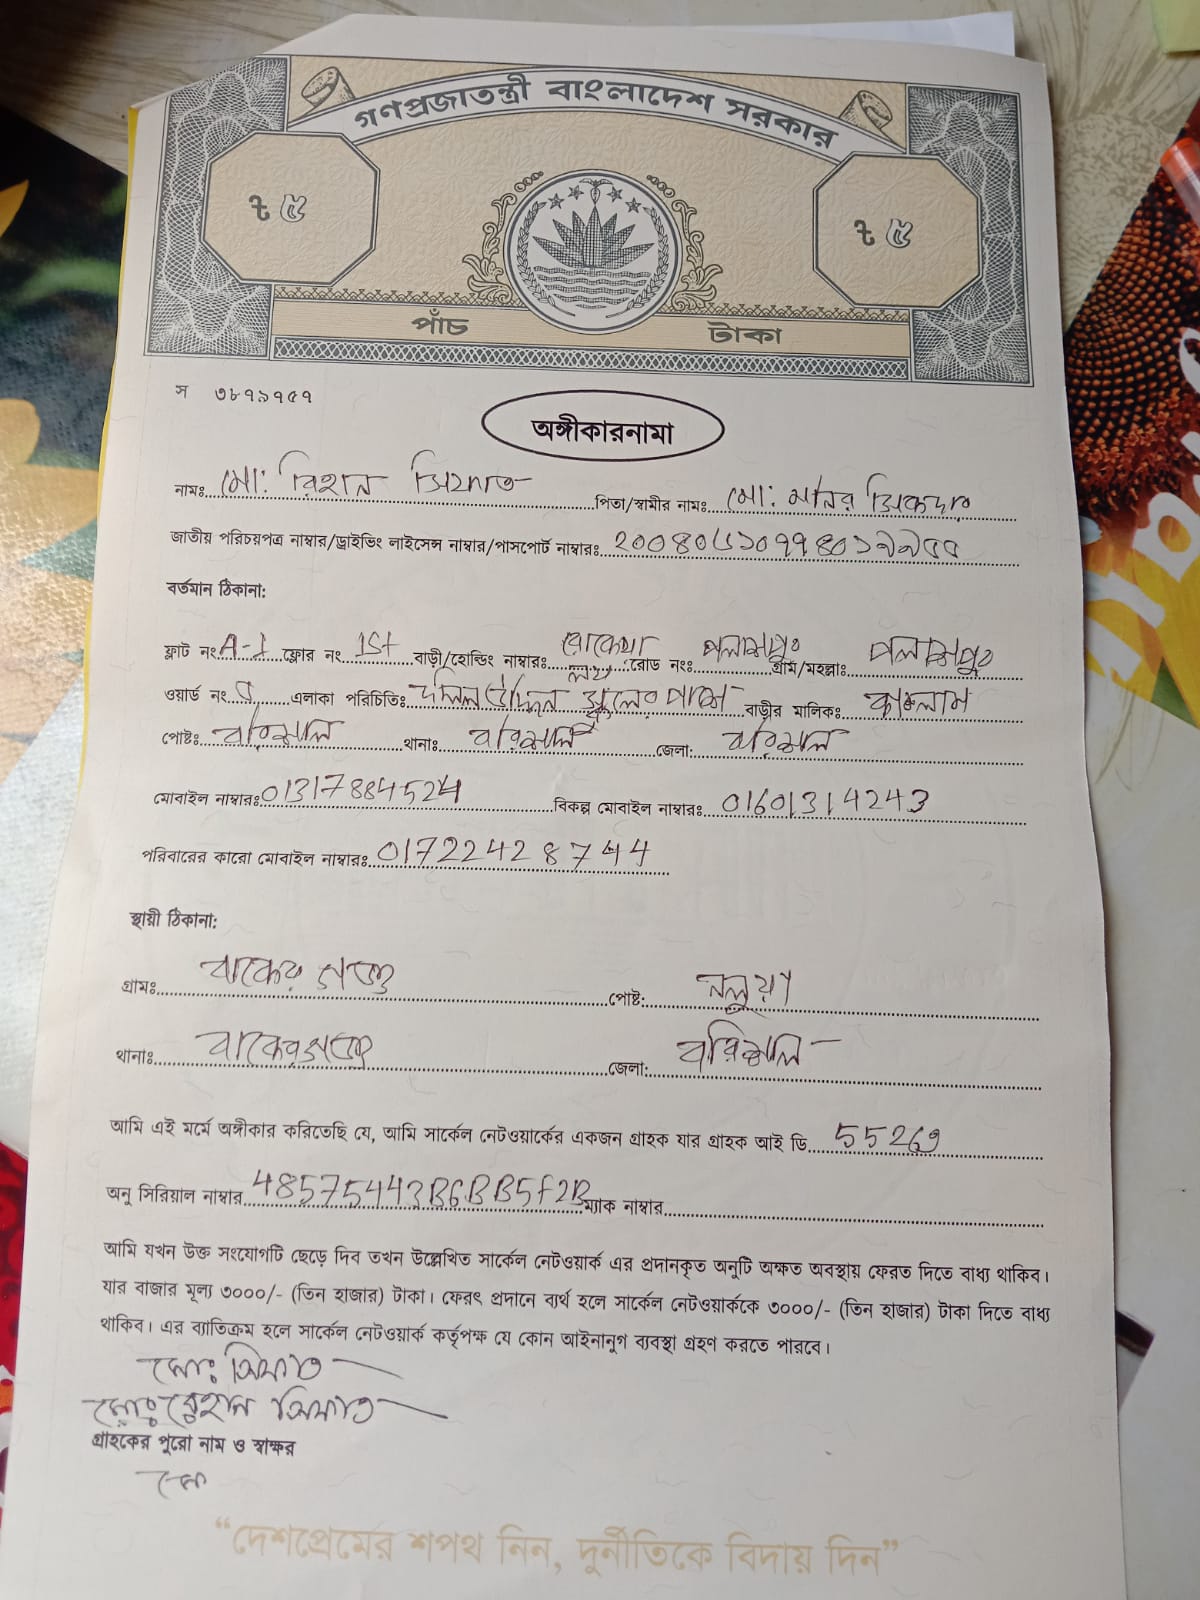 গণপ্রজাতন্ত্রী বাংলাদেশ সরকার
৳ ৫ ৳ ৫
পাঁচ টাকা
স ৩৮৭৯৭৫৭
অঙ্গীকারনামা
নামঃ মো: রিহান সিফাত পিতা/স্বামীর নামঃ মো: মনির সিকদার
জাতীয় পরিচয়পত্র নাম্বার/ড্রাইভিং লাইসেন্স নাম্বার/পাসপোর্ট নাম্বারঃ
বর্তমান ঠিকানা:
ফ্লাট নং A-1 ফ্লোর নং 1st বাড়ী/হোল্ডিং নাম্বারঃ রোকেয়া রোড নং: পলাশপুর গ্রাম/মহল্লাঃ পলাশপুর
ওয়ার্ড নং এলাকা পরিচিতিঃ স্কুলের পাশে বাড়ীর মালিক:
পোষ্টঃ বরিশাল থানাঃ বরিশাল জেলা: বরিশাল
মোবাইল নাম্বারঃ 01317884524 বিকল্প মোবাইল নাম্বারঃ 01601314243
পরিবারের কারো মোবাইল নাম্বারঃ 01722428744
স্থায়ী ঠিকানা:
গ্রামঃ বাকেরগঞ্জ পোষ্ট: নলুয়া
থানাঃ বাকেরগঞ্জ জেলা: বরিশাল
আমি এই মর্মে অঙ্গীকার করিতেছি যে, আমি সার্কেল নেটওয়ার্কের একজন গ্রাহক যার গ্রাহক আই ডি 55269
অনু সিরিয়াল নাম্বার 48575443B6BB5F2B ম্যাক নাম্বার
আমি যখন উক্ত সংযোগটি ছেড়ে দিব তখন উল্লেখিত সার্কেল নেটওয়ার্ক এর প্রদানকৃত অনুটি অক্ষত অবস্থায় ফেরত দিতে বাধ্য থাকিব।
যার বাজার মূল্য ৩০০০/- (তিন হাজার) টাকা। ফেরৎ প্রদানে ব্যর্থ হলে সার্কেল নেটওয়ার্ককে ৩০০০/- (তিন হাজার) টাকা দিতে বাধ্য
থাকিব। এর ব্যতিক্রম হলে সার্কেল নেটওয়ার্ক কর্তৃপক্ষ যে কোন আইনানুগ ব্যবস্থা গ্রহণ করতে পারবে।
মো: সিফাত
মো: রেহান সিফাত
গ্রাহকের পুরো নাম ও স্বাক্ষর
মো
“দেশপ্রেমের শপথ নিন, দুর্নীতিকে বিদায় দিন”